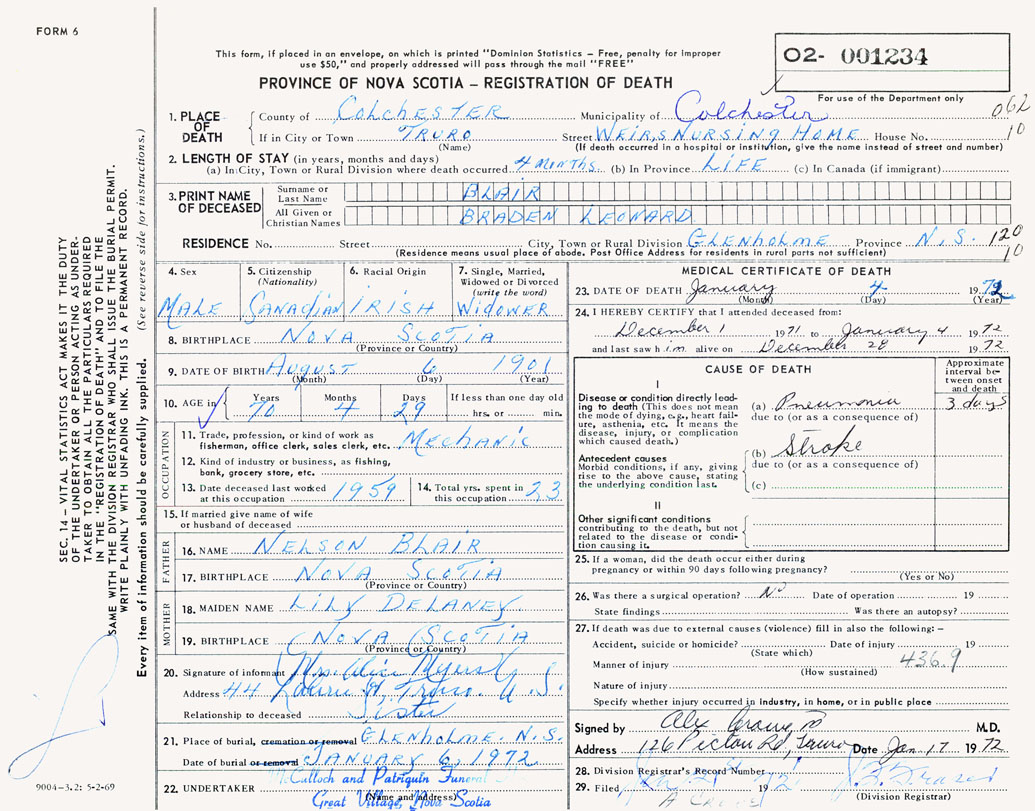 FORM 6
O2- 001234
This form, if placed in an envelope, on which is printed "Dominion Statistics – Free, penalty for improper
use $50," and properly addressed will pass through the mail "FREE"
PROVINCE OF NOVA SCOTIA – REGISTRATION OF DEATH
For use of the Department only
062
10
1. PLACE OF DEATH
County of COLCHESTER Municipality of Colchester
If in City or Town TRURO Street WEIRS NURSING HOME House No.
(Name) (If death occurred in a hospital or institution, give the name instead of street and number)
2. LENGTH OF STAY (in years, months and days)
(a) In City, Town or Rural Division where death occurred 4 MONTHS. (b) In Province LIFE (c) In Canada (if immigrant)
3. PRINT NAME OF DECEASED
Surname or Last Name BLAIR
All Given or Christian Names BRADEN LEONARD
RESIDENCE No. Street City, Town or Rural Division GLENHOLME Province N.S. 120
10
(Residence means usual place of abode. Post Office Address for residents in rural parts not sufficient)
4. Sex MALE
5. Citizenship (Nationality) CANADIAN
6. Racial Origin IRISH
7. Single, Married, Widowed or Divorced (write the word) WIDOWER
8. BIRTHPLACE NOVA SCOTIA
(Province or Country)
9. DATE OF BIRTH AUGUST 6 1901
(Month) (Day) (Year)
10. AGE in Years 70 Months 4 Days 29 If less than one day old hrs. or min.
OCCUPATION
11. Trade, profession, or kind of work as fisherman, office clerk, sales clerk, etc. MECHANIC
12. Kind of industry or business, as fishing, bank, grocery store, etc.
13. Date deceased last worked at this occupation 1959
14. Total yrs. spent in this occupation 23
15. If married give name of wife or husband of deceased
FATHER
16. NAME NELSON BLAIR
17. BIRTHPLACE NOVA SCOTIA
(Province or Country)
MOTHER
18. MAIDEN NAME LILY DELANEY
19. BIRTHPLACE NOVA SCOTIA
(Province or Country)
20. Signature of informant Mrs. Alice Myers
Address 44 St, Truro, N.S.
Relationship to deceased Sister
21. Place of burial, cremation or removal GLENHOLME. N.S.
Date of burial or removal JANUARY 6, 1972
22. UNDERTAKER McCulloch and Patriquin Funeral
(Name and Address)
Great Village, Nova Scotia
MEDICAL CERTIFICATE OF DEATH
23. DATE OF DEATH January 4 1972
(Month) (Day) (Year)
24. I HEREBY CERTIFY that I attended deceased from:
December 1 1971 to January 4 1972
and last saw him alive on December 28 1972
CAUSE OF DEATH
Approximate interval between onset and death
I
Disease or condition directly leading to death (This does not mean the mode of dying, e.g., heart failure, asthenia, etc. It means the disease, injury, or complication which caused death.)
(a) Pneumonia 3 days
due to (or as a consequence of)
Antecedent causes
Morbid conditions, if any, giving rise to the above cause, stating the underlying condition last.
(b) Stroke
due to (or as a consequence of)
(c)
II
Other significant conditions
contributing to the death, but not related to the disease or condition causing it.
25. If a woman, did the death occur either during pregnancy or within 90 days following pregnancy?
(Yes or No)
26. Was there a surgical operation? No Date of operation 19
State findings Was there an autopsy?
27. If death was due to external causes (violence) fill in also the following: –
Accident, suicide or homicide? Date of injury 19
(State which)
Manner of injury 436.9
(How sustained)
Nature of injury
Specify whether injury occurred in industry, in home, or in public place
Signed by Alex M.D.
Address 126 Pictou Rd, Truro Date Jan 17 1972
28. Division Registrar's Record Number
29. Filed Jan. 21 1972
(Division Registrar)
SEC. 14 – VITAL STATISTICS ACT MAKES IT THE DUTY
OF THE UNDERTAKER OR PERSON ACTING AS UNDER-
TAKER TO OBTAIN ALL THE PARTICULARS REQUIRED
IN THE "REGISTRATION OF DEATH" AND TO FILE THE
SAME WITH THE DIVISION REGISTRAR WHO SHALL ISSUE THE BURIAL PERMIT.
WRITE PLAINLY WITH UNFADING INK. THIS IS A PERMANENT RECORD.
Every item of information should be carefully supplied. (See reverse side for instructions.)
9004-3.2: 5-2-69